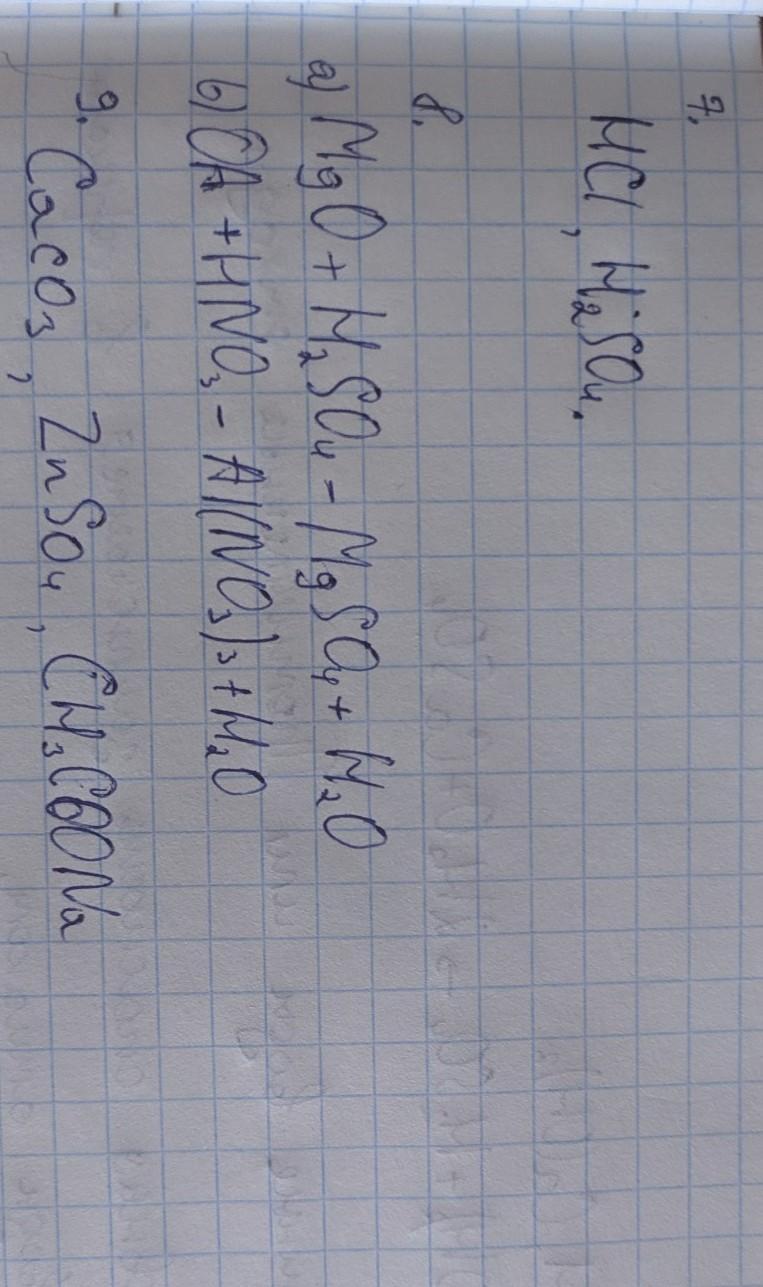 7.
HCl, H₂SO₄.
8.
a) MgO + H₂SO₄ - MgSO₄ + H₂O
b) OA + HNO₃ - Al(NO₃)₃ + H₂O
9. CaCO₃, ZnSO₄, CH₃COONa